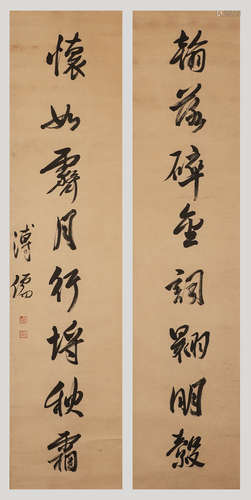 翰落碎金詞翱明穀
懷如霽月行埒秋霜
溥儒